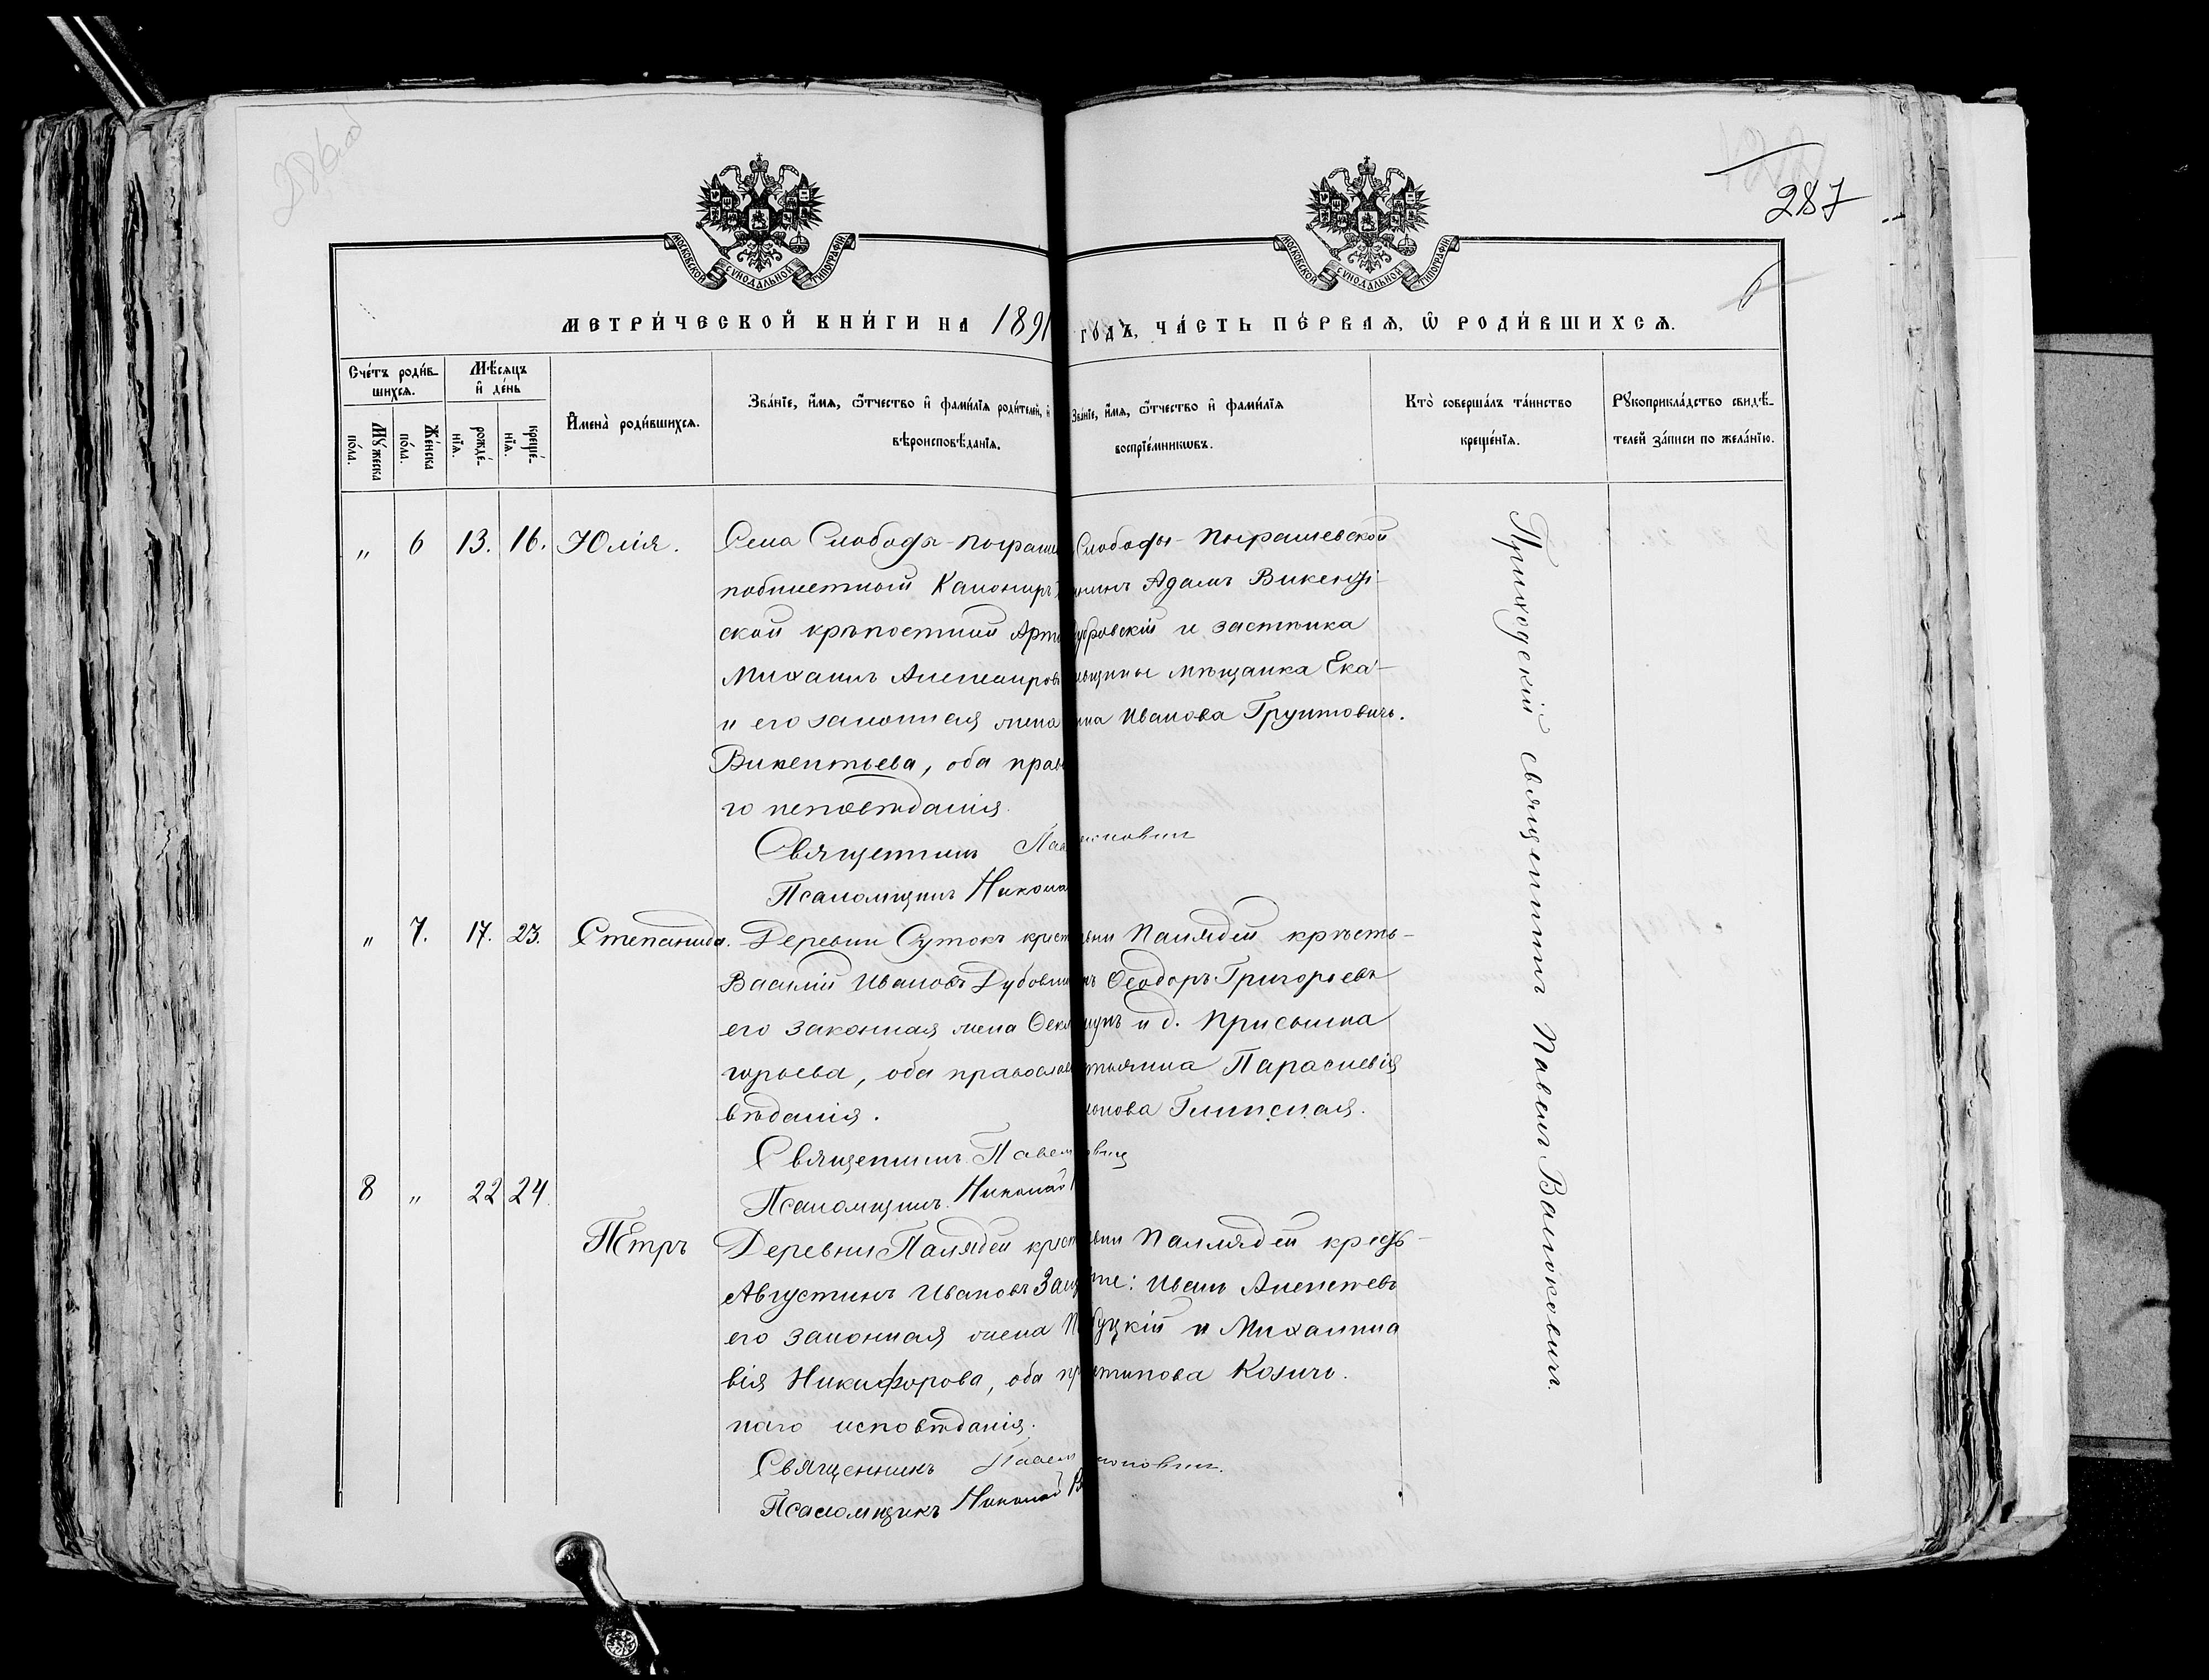 286об
287
6
МОСКОВСКОЙ СѴНОДАЛЬНОЙ ТИПОГРАФІИ.
МОСКОВСКОЙ СѴНОДАЛЬНОЙ ТИПОГРАФІИ.
МЕТРИ́ЧЕСКОЙ КНИ́ГИ НА 1891
ГО́ДЪ, ЧА́СТЬ ПЕ́РВАЯ, Ѡ РОДИ́ВШИХСЯ.
Сче́тъ роди́в-
шихся.
Мѣ́сяцъ
и де́нь
Му́жеска
по́ла.
Же́нска
по́ла.
рожде́-
нїя.
креще́-
нїя.
Имена̀ роди́вшихся.
Зва́нїе, и́мя, ѻ́тчество и фами́лїя роди́телей, и
вѣроисповѣ́данїя.
Зва́нїе, и́мя, ѻ́тчество и фами́лїя
воспрїе́мникωвъ.
Кто̀ соверша́лъ та́инство
креще́нїя.
Рукоприкла́дство свидѣ́-
телей за́писи по жела́нїю.
„ 6 13. 16. Юлія.
Села Слободы-Пыраш
побилетный Канониръ
ской крѣпостной Арти
Михаилъ Александров
и его законная жена
Викентьева, оба прав
го исповѣданія.
Священникъ Пав
Псаломщикъ Никола
Слободы-Пырашевской
Адамъ Викенті-
убровскій и застѣнка
ьщины мѣщанка Ека-
ина Иванова Грунтовичъ.
новичъ
„ 7. 17. 23. Степанида.
Деревни Сутокъ крест
Василій Ивановъ Дубовик
его законная жена Ѳекл
горьева, оба православ
вѣданія.
Священникъ Павел
Псаломщикъ Николай
вни Палядей кресть-
нъ Ѳеодоръ Григорьевъ
и д. Присынка
тьянка Параскевія
Глинская.
вичъ
8 „ 22 24. Петръ
Деревни Палядей крест
Августинъ Ивановъ
его законная жена П
вія Никифорова, оба пр
наго исповѣданія.
Священникъ Павел
Псаломщикъ Николай
вни Палядей кресть-
не: Иванъ Алексѣевъ
уцкій и Михалина
Козичъ.
коновичъ.
Приходскій священникъ Павелъ Валюковичъ.